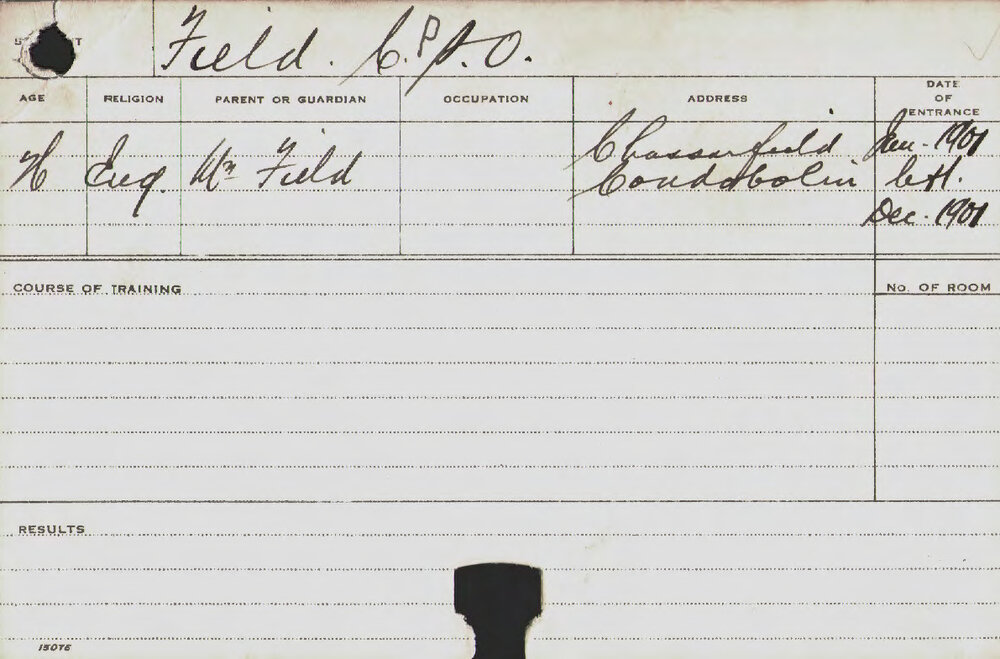 Field. C.P.A.O.
AGE RELIGION PARENT OR GUARDIAN OCCUPATION ADDRESS DATE OF ENTRANCE
H Eng. Mr Field Jan. 1901
Condobolin
Dec. 1901
COURSE OF TRAINING No. OF ROOM
RESULTS
15076